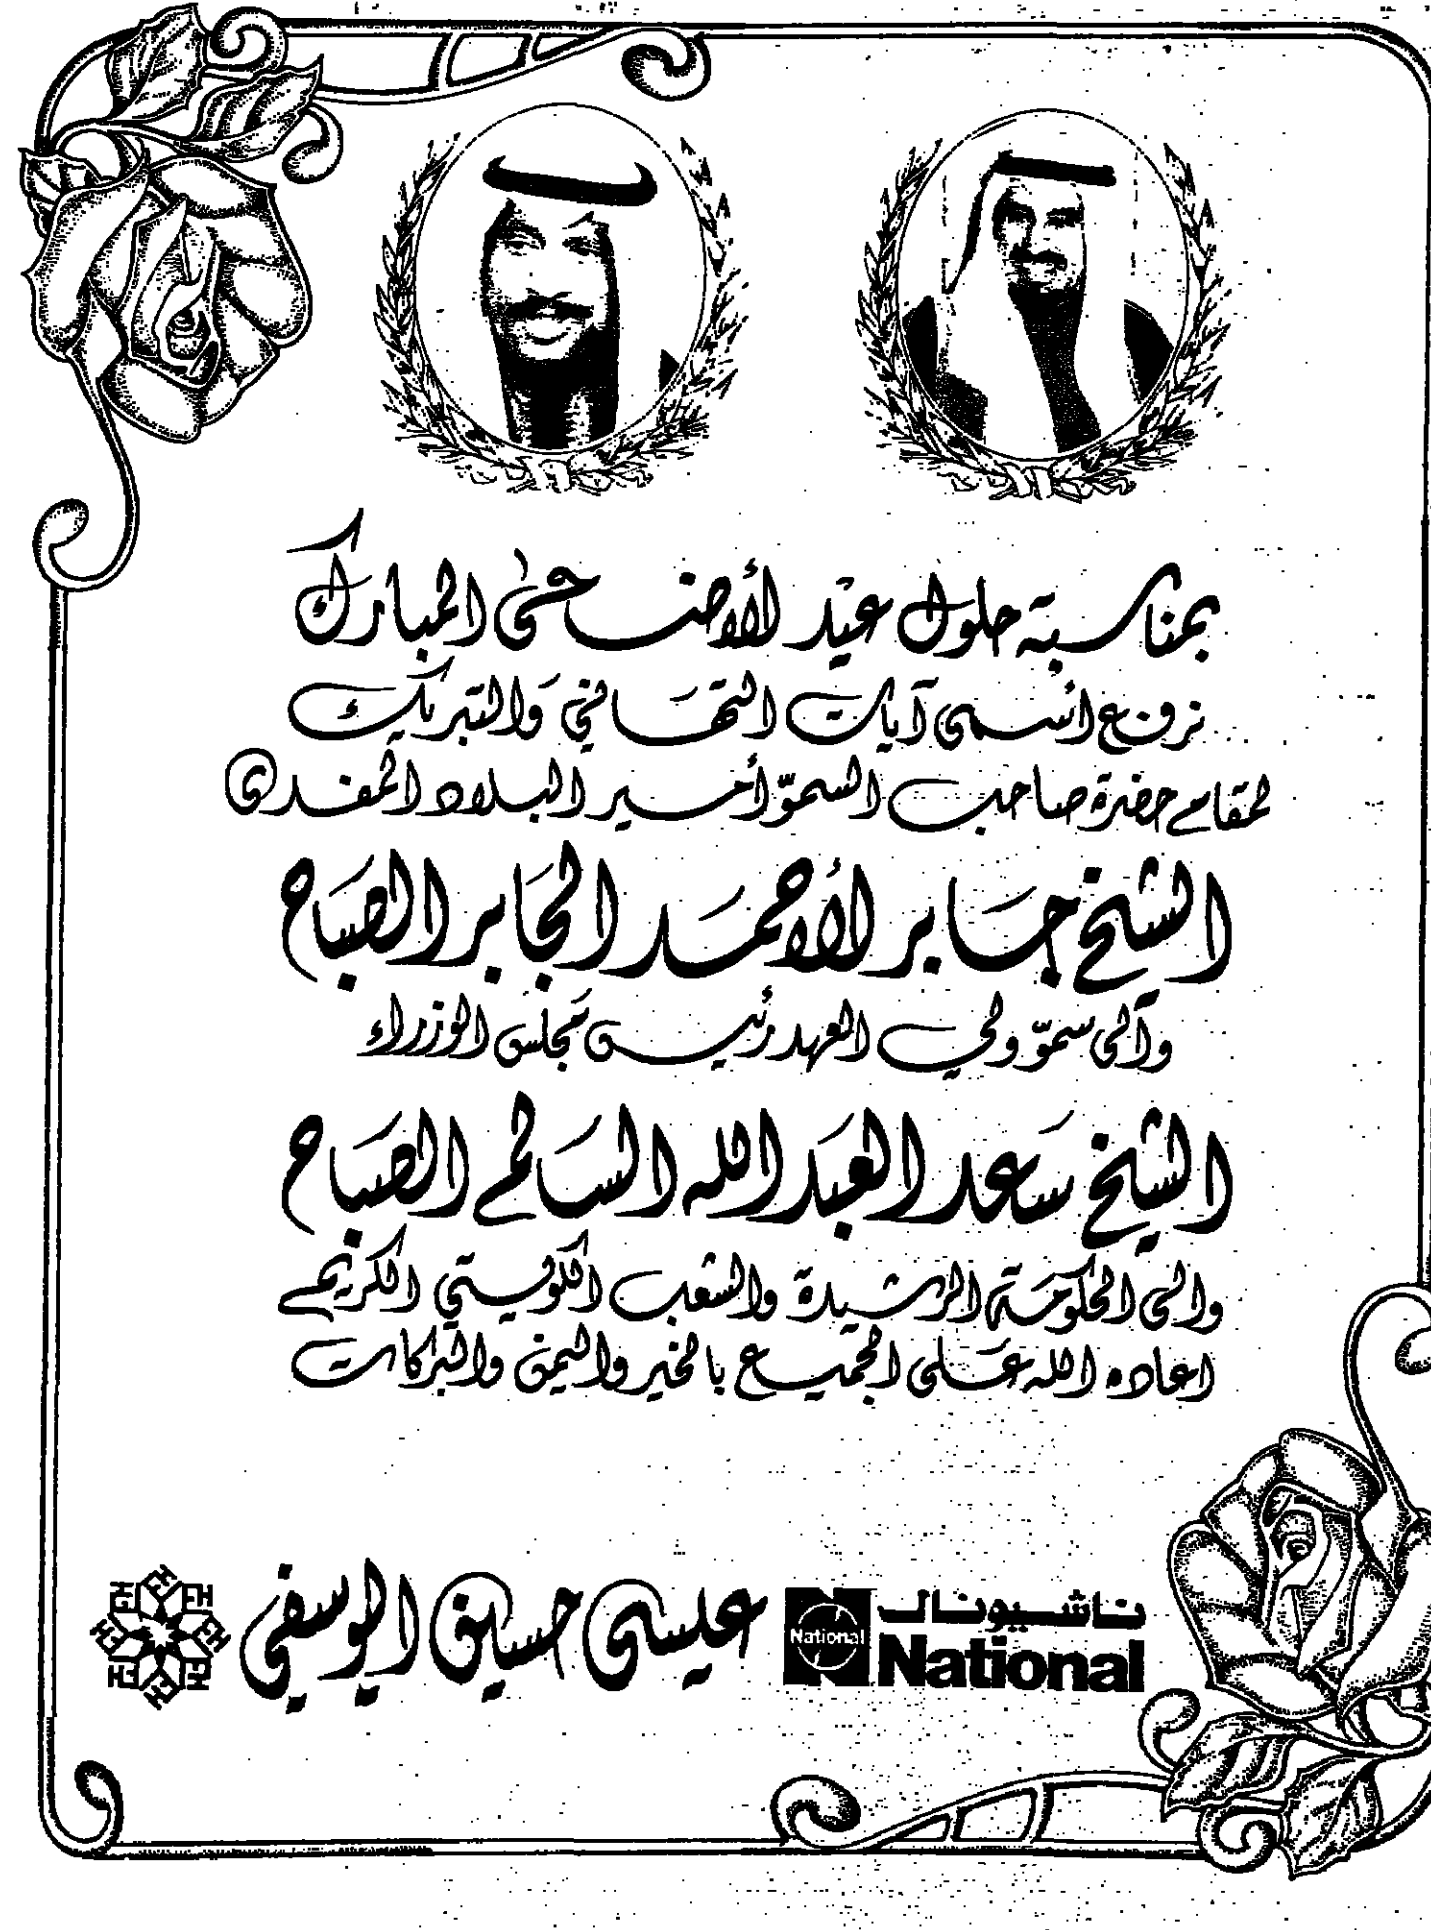 بمناسبة حلول عيد الأضحى المبارك
نرفع أسمى آيات التهاني والتبريك
لمقام حضرة صاحب السموّ أمير البلاد المفدى
الشيخ جابر الأحمد الجابر الصباح
وإلى سموّ ولي العهد رئيس مجلس الوزراء
الشيخ سعد العبد الله السالم الصباح
وإلى الحكومة الرشيدة والشعب الكويتي الكريم
اعاده الله على الجميع بالخير واليمن والبركات
ناشيونال
National
National
عيسى حسين اليوسفي